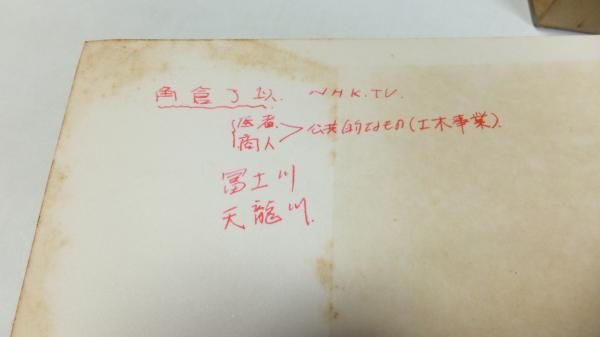 角倉了以. NHK.TV.
{医者. 商人 > 公共的なもの(土木事業).
冨士川
天龍川.